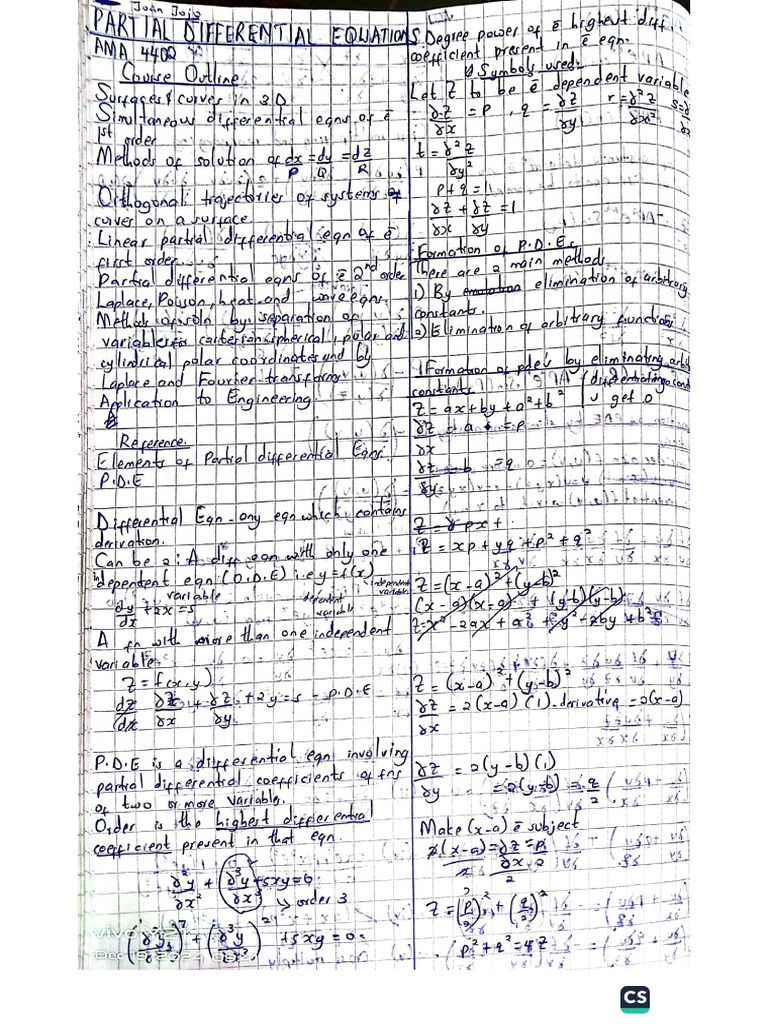 John Jojo
PARTIAL DIFFERENTIAL EQUATIONS
AMA 4402
Course Outline
Surfaces & curves in 3D
Simultaneous differential eqns of ē
1st order
Methods of solution of dx/P = dy/Q = dz/R
Orthogonal trajectories of systems of
curves on a surface
Linear partial differential eqn of ē
first order
Partial differential eqns of ē 2nd order
Laplace, Poison, heat and wave eqns.
Method of soln by separation of
variables in cartersian spherical, polar and
cylindrical polar coordinates and by
Laplace and Fourier transforms
Application to Engineering
Reference.
Elements of Partial differential Eqns.
P.D.E
Differential Eqn - any eqn which contains
derivation.
Can be 2: A diff eqn with only one
independent eqn (O.D.E) i.e y = f(x)
variable
dependent variable
independent variable
dy/dx + 2x = 5
A fn with more than one independent
variable
Z = f(x, y)
∂z/∂x + ∂z/∂y + 2y = 5 - P.D.E
P.D.E is a differential eqn involving
partial differential coefficients of fns
of two or more variables.
Order is the highest differential
coefficient present in that eqn
∂²y/∂x² + ∂³y/∂x³ + 5xy = 0
↳ order 3
+ 5xy = 0
Degree power of ē highest diff
coefficient present in ē eqn.
Symbols used:
Let Z to be ē dependent variable
∂z/∂x = P, q = ∂z/∂y r = ∂²z/∂x²
t = ∂²z/∂y²
p + q = 1
∂z/∂x + ∂z/∂y = 1
Formation of P.D.Es
There are 2 main methods.
1) By elimination of arbitrary
constants.
2) Elimination of arbitrary functions
Formation of pde's by eliminating arbi
constants
(differentiating a const
u get 0
Z = ax + by + a² + b²
∂z/∂x = a = p
∂z/∂y = b = q
Z = px +
Z = xp + yq + p² + q²
Z = (x-a)² + (y-b)²
(x-a)(x-a) + (y-b)(y-b)
Z = x² - 2ax + a² + y² - 2by + b²
Z = (x-a)² + (y-b)²
∂z/∂x = 2(x-a)(1) - derivative = 2(x-a)
∂z/∂y = 2(y-b)(1)
= 2(y-b) = q/2
Make (x-a) ē subject
2(x-a) = ∂z/∂x = p/2
Z = (p/2)² + (q/2)²
p² + q² = 4Z
vivo
CS